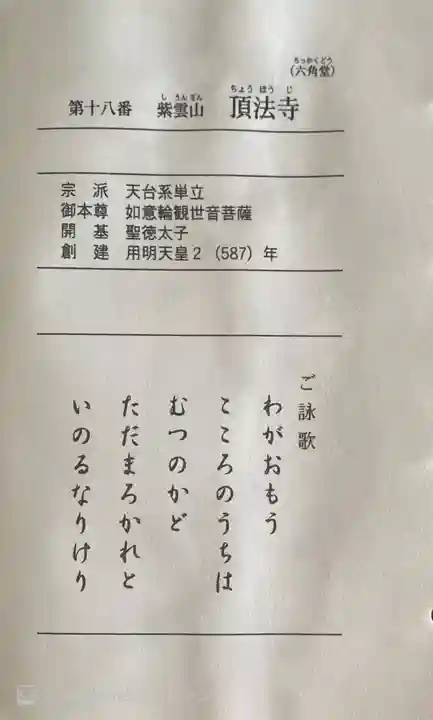 (六角堂)
ろっかくどう
第十八番 紫雲山 頂法寺
し うんざん ちょう ほう じ
宗派 天台系単立
御本尊 如意輪観世音菩薩
開基 聖徳太子
創建 用明天皇2(587)年
ご詠歌
わがおもう
こころのうちは
むつのかど
ただまろかれと
いのるなりけり